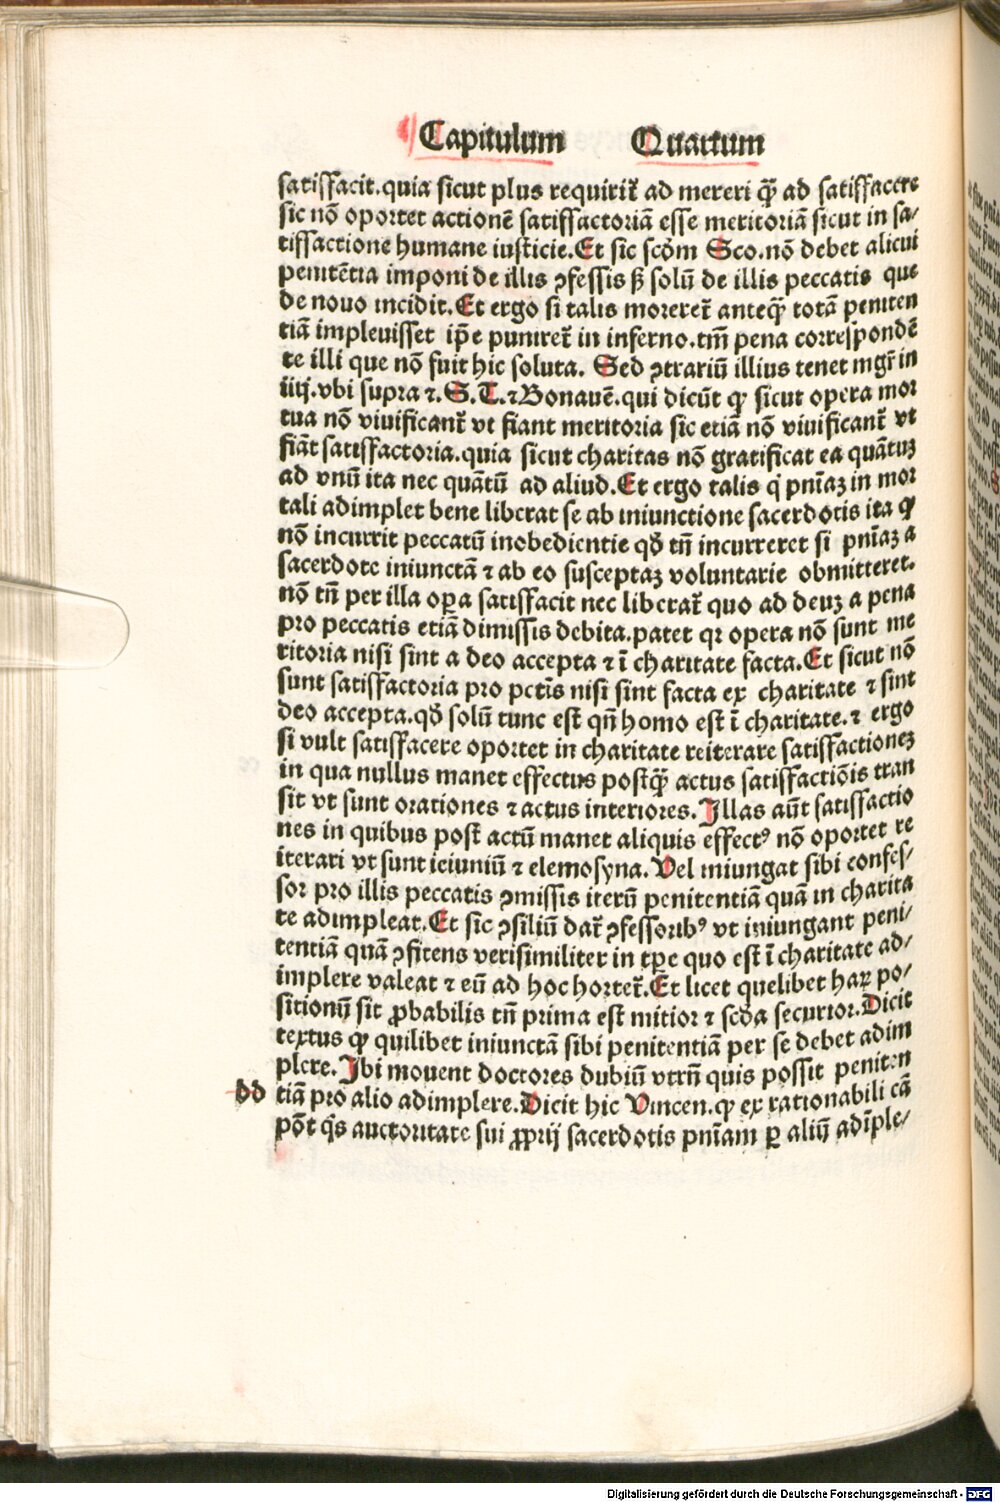 Capitulum Quartum
satisfacit.quia sicut plus requirit᷑ ad mereri q̈ꝫ ad satisfacere
sic nō oportet actionē satisfactoriā esse meritoriā sicut in sa/
tisfactione humane iusticie.Et sic scōm Sco.nō debet alicui
penitētia imponi de illis ꝯfessis ß solū de illis peccatis que
de nouo incidit.Et ergo si talis moreret᷑ anteq̈ꝫ totā peniten
tiā impleuisset ip̄e puniret᷑ in inferno.tm̄ pena correspondē
te illi que nō fuit hic soluta. Sed ꝯtrariū illius tenet mgr̄ in
iiij.vbi supra ⁊.S.T.⁊Bonauē.qui dicūt ꝙ sicut opera mor
tua nō viuificant᷑ vt fiant meritoria sic etiā nō viuificant᷑ vt
fiāt satisfactoria.quia sicut charitas nō gratificat ea quātuꝫ
ad vnū ita nec quātū ad aliud.Et ergo talis q̇ pn̄iaꝫ in mor
tali adimplet bene liberat se ab iniunctione sacerdotis ita ꝙ
nō incurrit peccatū inobedientie qď tn̄ incurreret si pn̄iaꝫ a
sacerdote iniunctā ⁊ ab eo susceptaꝫ voluntarie obmitteret.
nō tn̄ per illa oꝑa satisfacit nec liberat᷑ quo ad deuꝫ a pena
pro peccatis etiā dimissis debita.patet qꝛ opera nō sunt me
ritoria nisi sint a deo accepta ⁊ ī charitate facta.Et sicut nō
sunt satisfactoria pro pctīs nisi sint facta ex charitate ⁊ sint
deo accepta.qď solū tunc est qn̄ homo est ī charitate.⁊ ergo
si vult satisfacere oportet in charitate reiterare satisfactioneꝫ
in qua nullus manet effectus postq̈ꝫ actus satisfactiōis tran
sit vt sunt orationes ⁊ actus interiores.Illas aūt satisfactio
nes in quibus post actū manet aliquis effectꝰ nō oportet re
iterari vt sunt ieiuniū ⁊ elemosyna.Vel iniungat sibi confes/
sor pro illis peccatis ꝯmissis iterū penitentiā quā in charita
te adimpleat.Et sic ꝯsiliū dat᷑ ꝯfessoribꝰ vt iniungant peni/
tentiā quā ꝯfitens verisimiliter in tꝑe quo est ī charitate ad/
implere valeat ⁊ eū ad hoc hortet᷑.Et licet quelibet haꝝ po/
sitionū sit ꝓbabilis tn̄ prima est mitior ⁊ scďa securior.Dicit
textus ꝙ quilibet iniunctā sibi penitentiā per se debet adim
plere.Ibi mouent doctores dubiū vtrū quis possit peniten
dd tiā pro alio adimplere.Dicit hic Vincen.ꝙ ex rationabili cā
pōt q̇s auctoritate sui ꝓprij sacerdotis pn̄iam ꝑ aliū adīple/
Digitalisierung gefördert durch die Deutsche Forschungsgemeinschaft - DFG